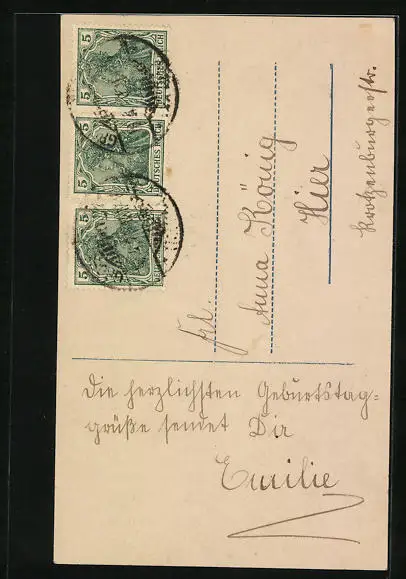 5
DEUTSCHES REICH
5
DEUTSCHES REICH
5
Frl.
Anna König
Hier
Krotzenburgerstr.
Die herzlichsten Geburtstag=
grüße sendet Dir
Emilie